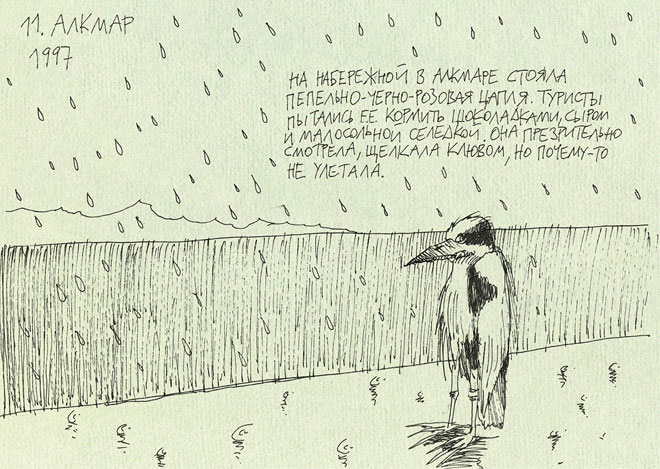 11. АЛКМАР
1997
НА НАБЕРЕЖНОЙ В АЛКМАРЕ СТОЯЛА
ПЕПЕЛЬНО-ЧЕРНО-РОЗОВАЯ ЦАПЛЯ. ТУРИСТЫ
ПЫТАЛИСЬ ЕЕ КОРМИТЬ ШОКОЛАДКАМИ, СЫРОМ
И МАЛОСОЛЬНОЙ СЕЛЕДКОЙ. ОНА ПРЕЗРИТЕЛЬНО
СМОТРЕЛА, ЩЕЛКАЛА КЛЮВОМ, НО ПОЧЕМУ-ТО
НЕ УЛЕТАЛА.